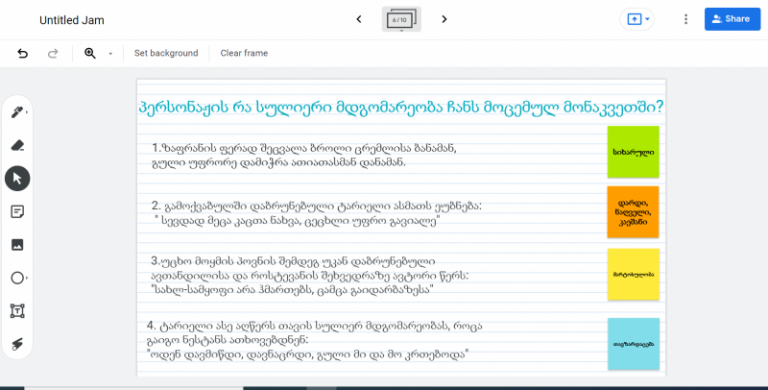 Untitled Jam
6 / 10
Share
Set background
Clear frame
პერსონაჟის რა სულიერი მდგომარეობა ჩანს მოცემულ მონაკვეთში?
1.ზაფრანის ფერად შეცვალა ბროლი ცრემლისა ბანამან,
გული უფრორე დამიჭრა ათიათასმან დანამან.
სიხარული
2. გამოქვაბულში დაბრუნებული ტარიელი ასმათს ეუბნება:
" სევდად მეცა კაცთა ნახვა, ცეცხლი უფრო გავიალე"
დარდი,
ნაღველი,
კაეშანი
3.უცხო მოყმის პოვნის შემდეგ უკან დაბრუნებული
ავთანდილისა და როსტევანის შეხვედრაზე ავტორი წერს:
"სახლ-სამყოფი არა ჰმართებს, ცამცა გაიდარბაზესა"
მარტოსულობა
4. ტარიელი ასე აღწერს თავის სულიერ მდგომარეობას, როცა
გაიგო ნესტანს ათხოვებდნენ:
"ოდენ დავმიწდი, დავნაცრდი, გული მი და მო კრთებოდა"
თავზარდაცემა